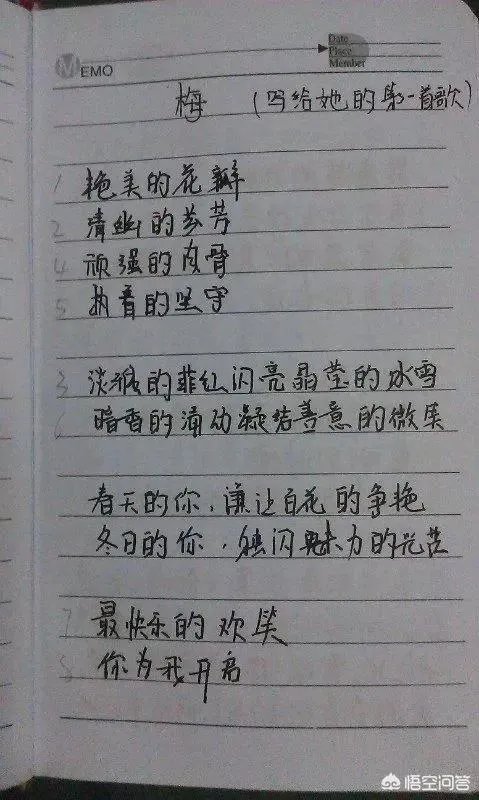 Date
Place
Member
MEMO
梅 (写给她的第一首歌)
1 艳美的花瓣
2 清幽的芬芳
4 顽强的内骨
5 执着的坚守
3 淡淡的菲红闪亮晶莹的冰雪
6 暗香的涌动凝结善意的微笑
春天的你，谦让百花的争艳
冬日的你，独闪魅力的光芒
7 最快乐的欢笑
8 你为我开启
悟空问答